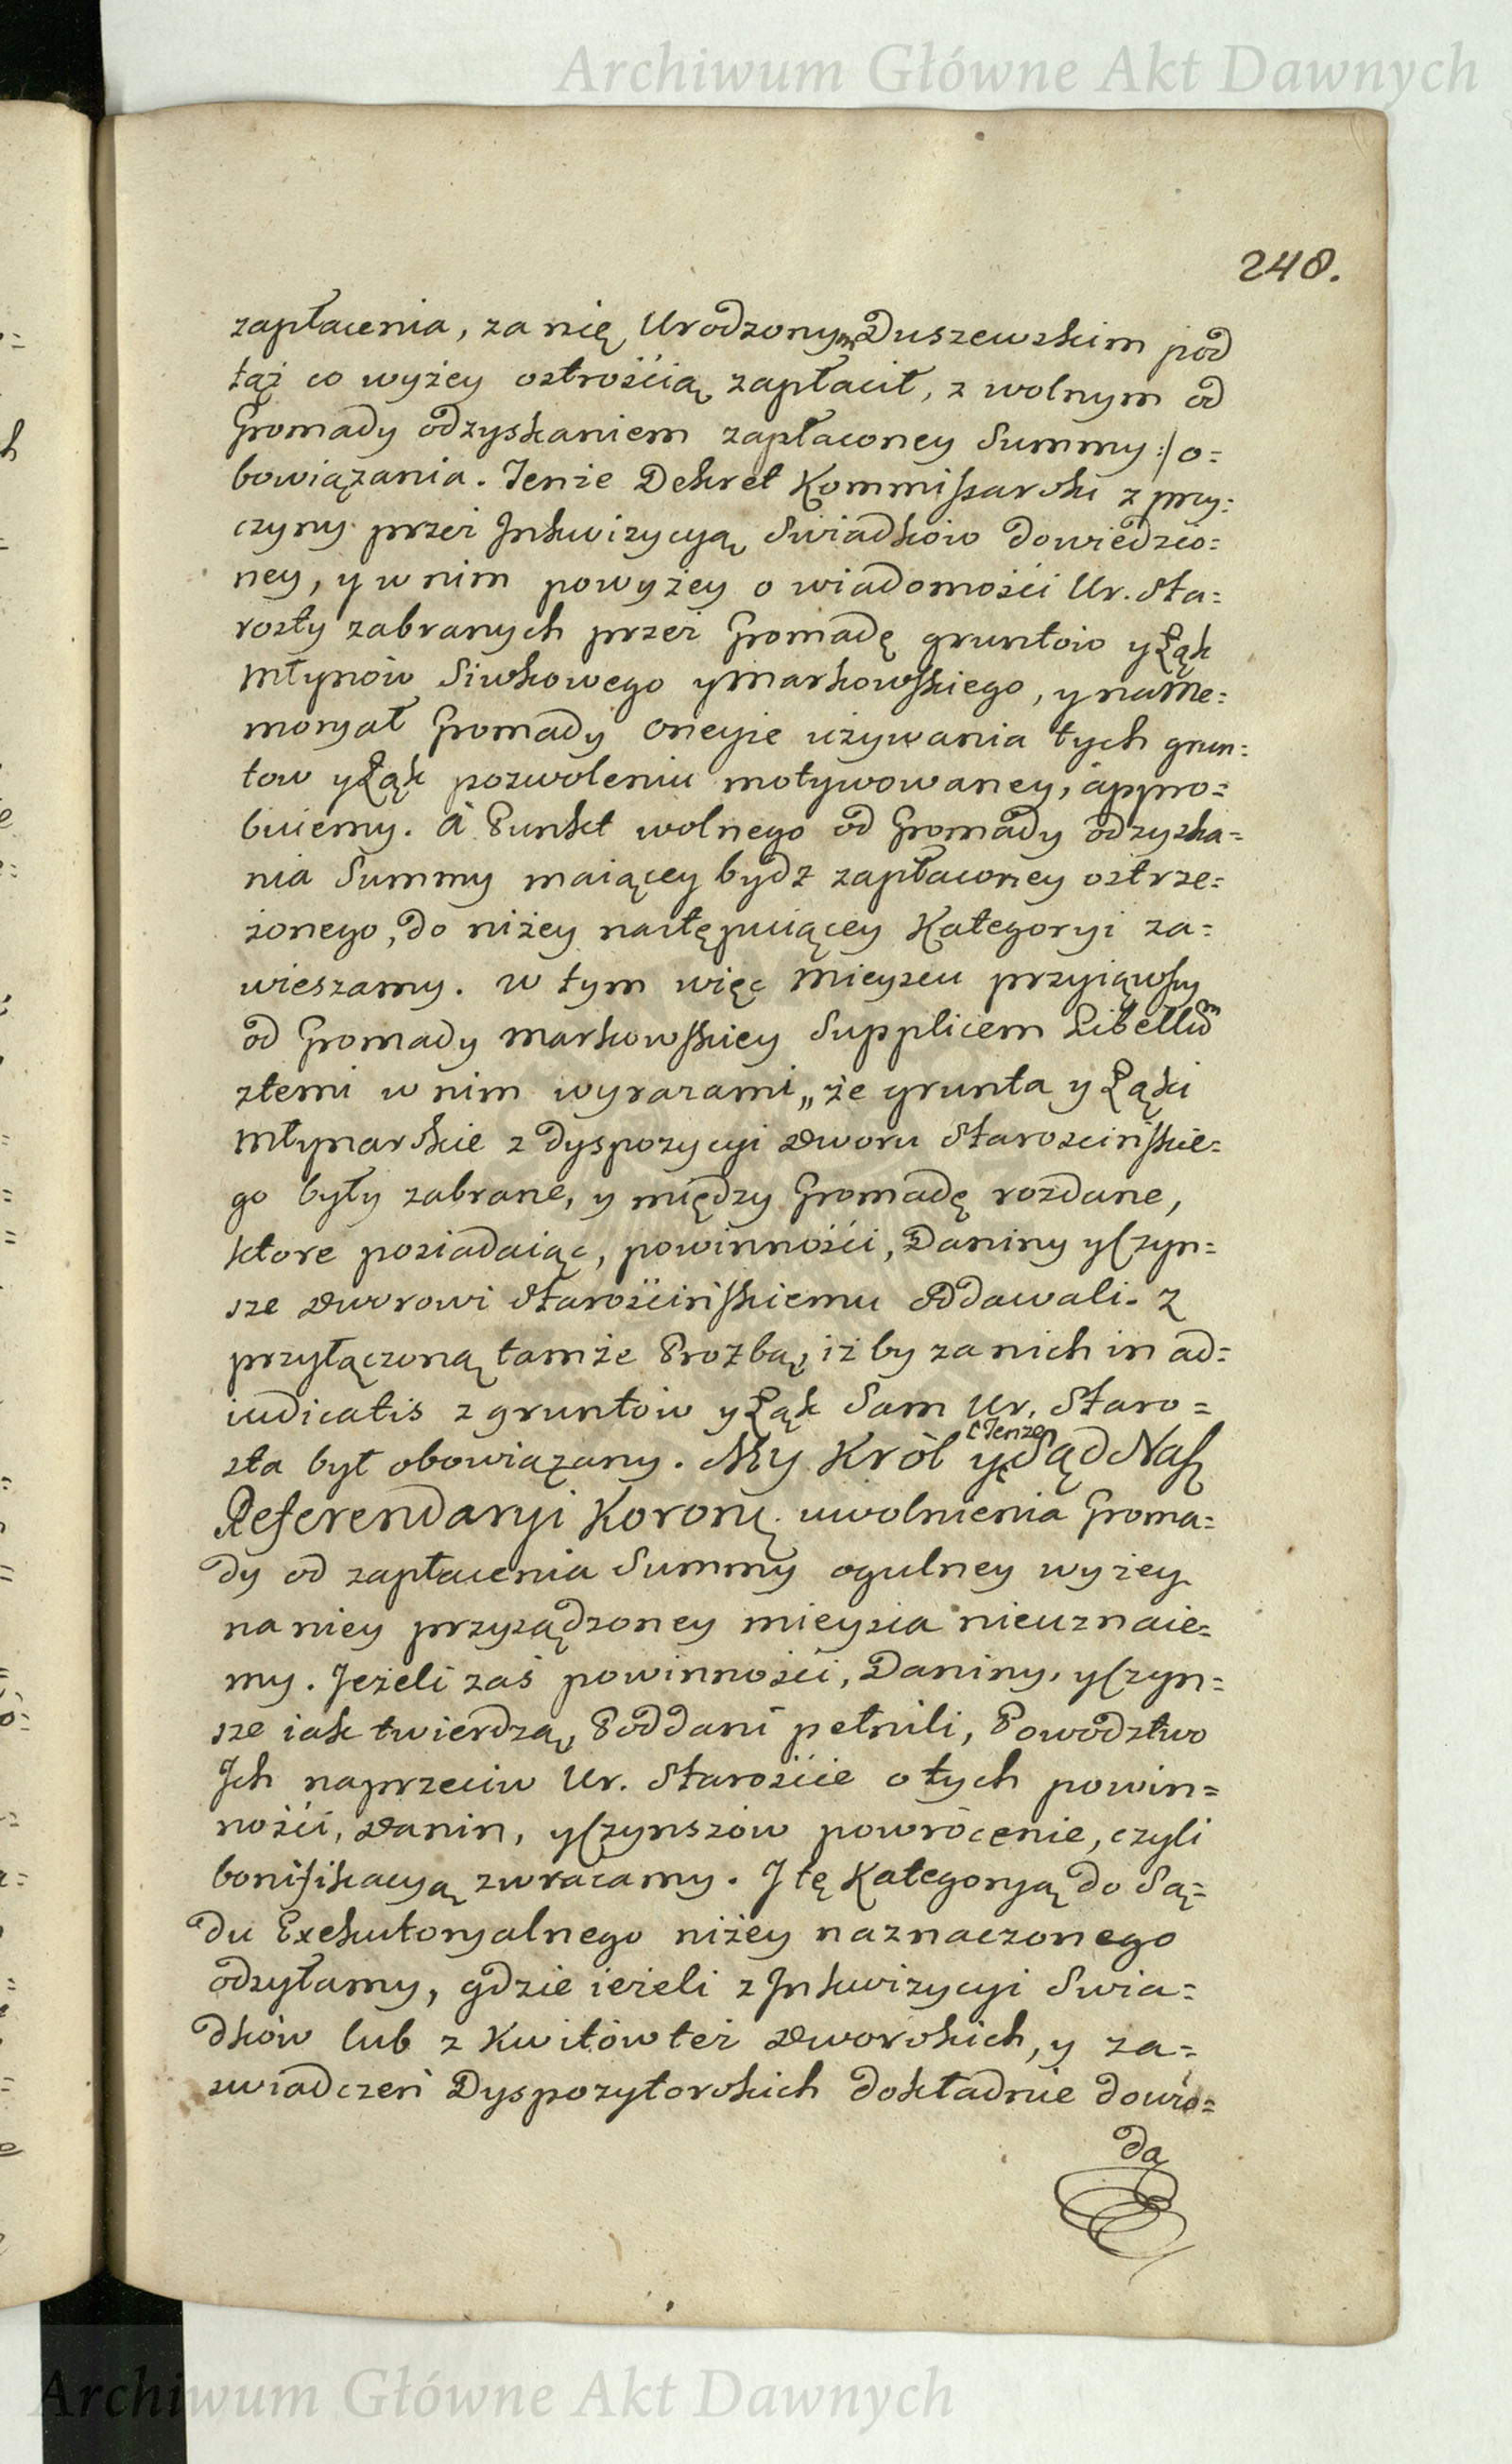 Archiwum Główne Akt Dawnych
248.
zapłacenia, za nię Urodzonym Duszewskim pod
tąż co wyżey ostrością zapłacił, z wolnym od
Gromady odzyskaniem zapłaconey Summy :/ o=
bowiązania. Tenże Dekret Kommissarski z przy=
czyny przez Inkwizycyą Swiadków dowiedzio=
ney, y w nim powyżey o wiadomości Ur. Sta=
rosty zabranych przez Gromadę gruntów y Łąk
Młynów Siwkowego y Markowskiego, y na Me=
moryał Gromady oneyże używania tych grun=
tow y Łąk pozwoleniu motywowaney, appro=
buiemy. à Punkt wolnego od Gromady odzyska=
nia Summy maiącey bydź zapłaconey ostrze=
żonego, do niżey następuiącey Kategoryi za=
wieszamy. w tym więc Mieyscu przyiąwszy
od Gromady Markowskiey Supplicem Libellum
ztemi w nim wyrazami „ że grunta y Łąki
Młynarskie z dyspozycyi Dworu Starościńskie=
go były zabrane, y między Gromadę rozdane,
ktore posiadaiąc, powinności, Daniny y Czyn=
sze Dworowi Starościńskiemu oddawali. z
przyłączoną tamże Prozbą, iż by za nich in ad=
iudicatis z gruntów y Łąk Sam Ur. Staro=
sta był obowiązany. My Król y Tenże Sąd Nasz
Referendaryi Koronę. uwolnienia Groma=
dy od zapłacenia Summy ogulney wyżey
na niey przysądzoney mieysca nieuznaie=
my. Jeżeli zaś powinności, Daniny, y Czyn=
sze iak twierdzą, Poddani pełnili, Powodztwo
Ich naprzeciw Ur. Starościе o tych powin=
ności, Danin, y Czynszów powrócenie, czyli
bonifikacyą zwracamy. I tę Kategoryą do Są=
du Exekutoryalnego niżey naznaczonego
odsyłamy, gdzie ieżeli z Inkwizycyi Swia=
dków lub z Kwitów też Dworskich, y za=
swiadczeń Dyspozytorskich dokładnie dowio=
dą
Archiwum Główne Akt Dawnych